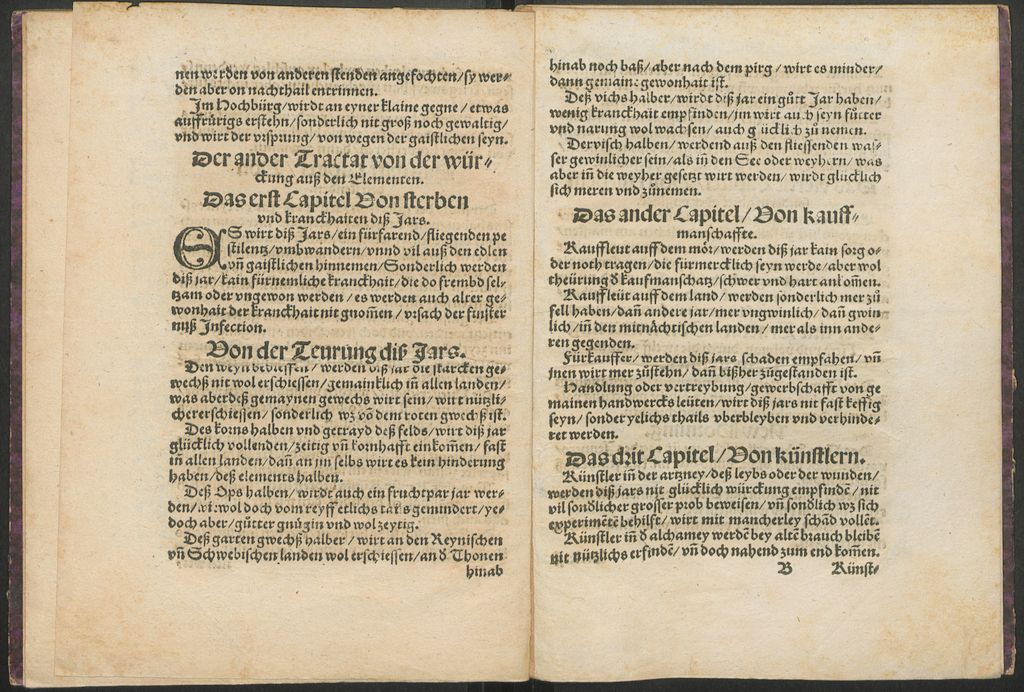 nen werden von anderen stenden angefochten/sy wer⸗
den aber on nachthail entrinnen.
Im Hochbürg/wirdt an eyner klaine gegne/etwas
auffrürigs erstehn/sonderlich nit groß noch gewaltig/
vnd wirt der vrsprung/von wegen der gaistlichen seyn.
Der ander Tractat von der wür⸗
ckung auß den Elementen.
Das erst Capitel Von sterben
vnd kranckhaiten diß Jars.
ES wirt diß Jars/ein fürfarend/fliegenden pe
stilentz/vmbwandern/vnnd vil auß den edlen
vñ gaistlichen hinnemen/Sonderlich werden
diß jar/kain fürnemliche kranckhait/die do frembd sel⸗
tzam oder vngewon werden/es werden auch alter ge⸗
wonhait der kranckhait nit gnomen/vrsach der finster
nuß Infection.
Von der Teurung diß Jars.
Den weyn betreffen/werden diß jar die starcken ge⸗
wechß nit wol erschiessen/gemainklich in allen landen/
was aber deß gemaynen gewechs wirt sein/wirt nützli⸗
cher erschiessen/sonderlich wz vō dem roten gwechß ist.
Des korns halben vnd getrayd deß felds/wirt diß jar
glücklich vollenden/zeitig vñ kornhafft einkom̄en/fast
in allen landen/dañ an jm selbs wirt es kein hinderung
haben/deß elements halben.
Deß Ops halben/wirdt auch ein fruchtpar jar wer⸗
den/wiewol doch vom reyff etlichs tails gemundert/ye⸗
doch aber/gütter gnügin vnd wol zeytig.
Deß garten gwechß halber/wirt an den Reynischen
vñ Schwebischen landen wol erschiessen/an d̄ Thonen
hinab
hinab noch baß/aber nach dem pirg/wirt es minder/
dann gemaine gewonhait ist.
Deß vichs halber/wirdt diß jar ein gütt Jar haben/
wenig kranckhait empfinden/jm wirt auch seyn fütter
vnd narung wol wachsen/auch glücklich zů nemen.
Der visch halben/werdend auß den fliessenden was⸗
ser gewinlicher sein/als in den See oder weyhern/was
aber in die weyher gesetzt wirt werden/wirdt glücklich
sich meren vnd zůnemen.
Das ander Capitel/Von kauff⸗
manschaffte.
Kauffleut auff dem mör/werden diß jar kain sorg o⸗
der noth tragen/die fürmercklich seyn werde/aber wol
theürung d̄ kaufmanschatz/schwer vnd hart ankom̄en.
Kauffleüt auff dem land/werden sonderlich mer zů
fell haben/dañ andere jar/mer vngwinlich/dañ gwin
lich/in den mitnächtischen landen/mer als inn ande⸗
ren gegenden.
Fürkauffer/werden diß jars schaden empfahen/vñ
jnen wirt mer zůstehn/dann bißher zůgestanden ist.
Handlung oder vertreybung/gewerbschafft von ge
mainen handwercks leüten/wirt diß jars nit fast keffig
seyn/sonder yelichs thails vberbleyben vnd verhinde⸗
ret werden.
Das drit Capitel/Von künstlern.
Künstler in der artzney/deß leybs oder der wunden/
werden diß jars nit glücklich würckung empfindē/nit
vil sondlicher grosser prob beweisen/vñ sondlich wz sich
experimētē behilft/wirt mit mancherley schād vollēt.
Künstler in d̄ alchamey werdē bey altē brauch bleibē
nit nützlichs erfindē/vñ doch nahend zum end kom̄en.
B Künst⸗